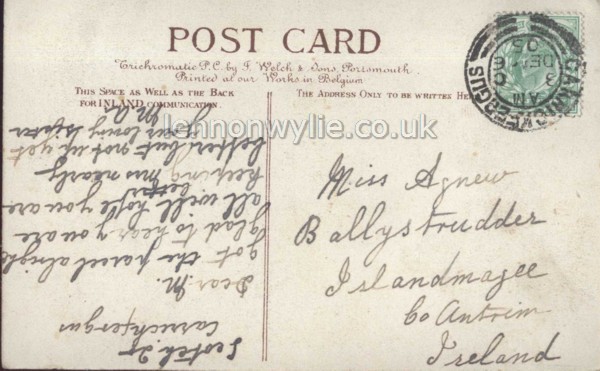 POST CARD
Trichromatic P.C. by F. Welch & Sons, Portsmouth.
Printed at our Works in Belgium
THIS SPACE AS WELL AS THE BACK
FOR INLAND COMMUNICATION.
THE ADDRESS ONLY TO BE WRITTEN HE
CARRICKFERGUS
AM
DE 16
05
lennonwylie.co.uk
Miss Agnew
Ballystrudder
Islandmagee
Co Antrim
Ireland
Scotch Qr
Carrickfergus
Dear M.
got the parcel alright
glad to hear you are
all well hope you are
better
keeping Mrs nearly
better but not up yet
your loving sister
M A